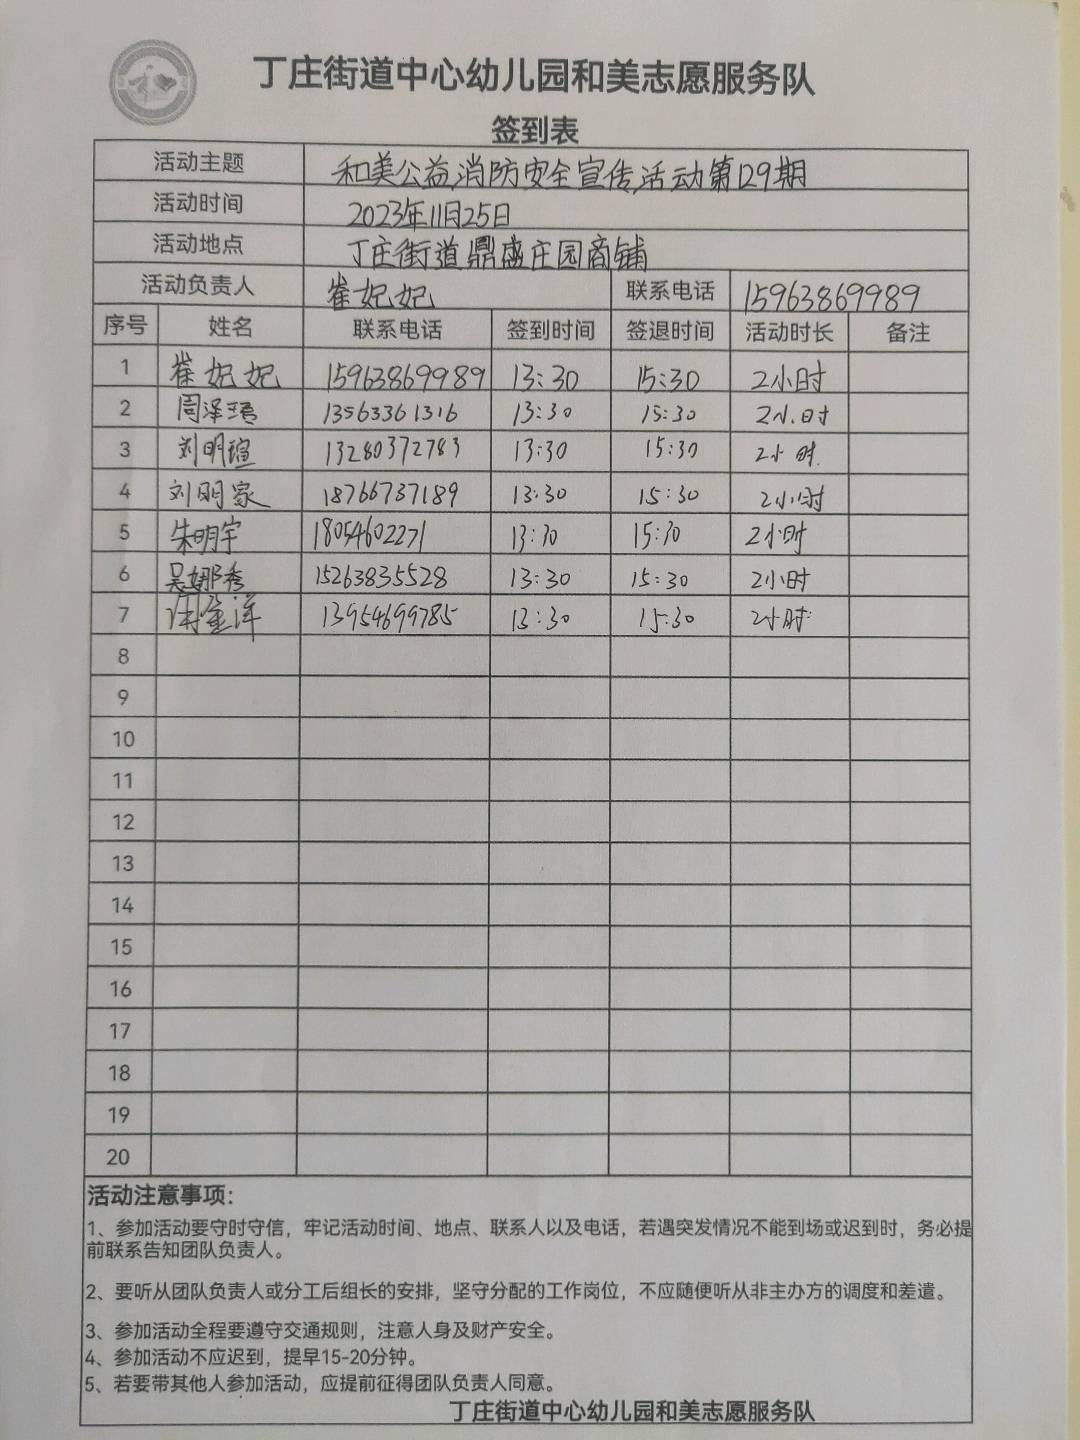 丁庄街道中心幼儿园和美志愿服务队
签到表
活动主题 和美公益消防安全宣传活动第129期
活动时间 2023年11月25日
活动地点 丁庄街道鼎盛庄园商铺
活动负责人 崔妃妃 联系电话 15963869989
序号 姓名 联系电话 签到时间 签退时间 活动时长 备注
1 崔妃妃 15963869989 13:30 15:30 2小时
2 周泽 13563361316 13:30 15:30 2小时
3 刘明瑄 13280372783 13:30 15:30 2小时
4 刘明家 18766737189 13:30 15:30 2小时
5 朱明宇 18054602271 13:30 15:30 2小时
6 吴娜秀 15263835528 13:30 15:30 2小时
7 13954699785 13:30 15:30 2小时
8
9
10
11
12
13
14
15
16
17
18
19
20
活动注意事项：
1、参加活动要守时守信，牢记活动时间、地点、联系人以及电话，若遇突发情况不能到场或迟到时，务必提
前联系告知团队负责人。
2、要听从团队负责人或分工后组长的安排，坚守分配的工作岗位，不应随便听从非主办方的调度和差遣。
3、参加活动全程要遵守交通规则，注意人身及财产安全。
4、参加活动不应迟到，提早15-20分钟。
5、若要带其他人参加活动，应提前征得团队负责人同意。
丁庄街道中心幼儿园和美志愿服务队